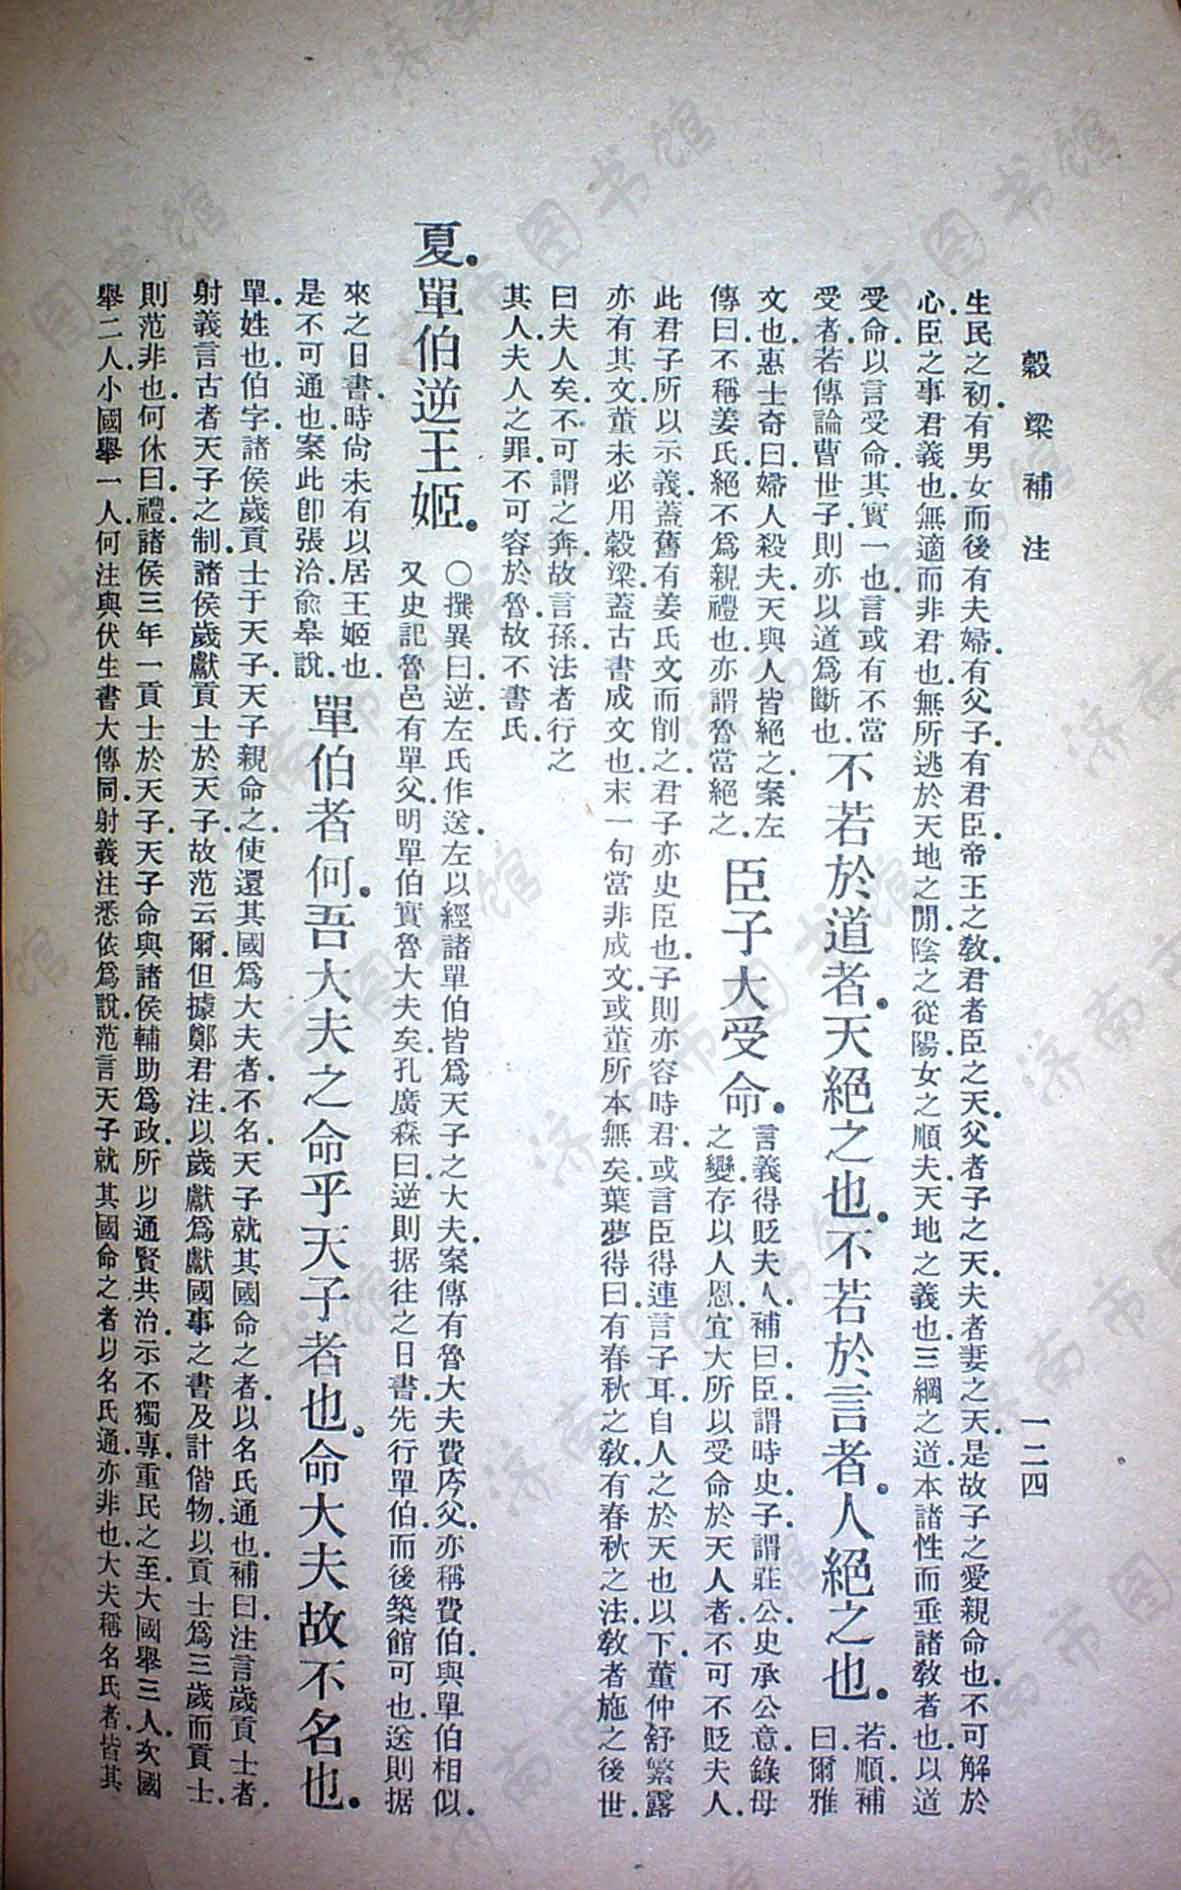 穀梁補注
一二四
生民之初.有男女而後有夫婦.有父子.有君臣.帝王之敎.君者臣之天.父者子之天.夫者妻之天.是故子之愛親命也.不可解於
心.臣之事君義也.無適而非君也.無所逃於天地之閒.陰之從陽.女之順夫.天地之義也.三綱之道.本諸性而垂諸敎者也.以道
受命.以言受命.其實一也.言或有不當
受者.若傳論曹世子.則亦以道爲斷也.
不若於道者.天絕之也.不若於言者.人絕之也.
若.順.補
曰.爾雅
文也.惠士奇曰.婦人殺夫.天與人皆絕之.案左
傳曰.不稱姜氏.絕不爲親禮也.亦謂魯當絕之.
臣子大受命.
言義得貶夫人.補曰.臣.謂時史.子.謂莊公.史承公意.錄母
之變.存以人恩.宜大所以受命於天人者.不可不貶夫人.
此君子所以示義.蓋舊有姜氏文而削之.君子亦史臣也.子則亦容時君.或言臣得連言子耳.自人之於天也以下.董仲舒繁露
亦有其文.董未必用穀梁.蓋古書成文也.末一句當非成文.或董所本無矣.葉夢得曰.有春秋之敎.有春秋之法.敎者施之後世.
曰夫人矣.不可謂之奔.故言孫.法者行之
其人.夫人之罪.不可容於魯.故不書氏.
夏.單伯逆王姬.
〇撰異曰.逆.左氏作送.左以經諸單伯皆爲天子之大夫.案傳有魯大夫費庈父.亦稱費伯.與單伯相似.
又史記魯邑有單父.明單伯實魯大夫矣.孔廣森曰.逆則据往之日書.先行單伯.而後築館可也.送則据
來之日書.時尚未有以居王姬也.
是不可通也.案此卽張洽俞皋說.
單伯者何.吾大夫之命乎天子者也.命大夫.故不名也.
單.姓也.伯.字.諸侯歲貢士于天子.天子親命之.使還其國爲大夫者.不名.天子就其國命之者.以名氏通也.補曰.注言歲貢士者.
射義言古者天子之制.諸侯歲獻貢士於天子.故范云爾.但據鄭君注.以歲獻爲獻國事之書及計偕物.以貢士爲三歲而貢士.
則范非也.何休曰.禮.諸侯三年一貢士於天子.天子命與諸侯輔助爲政.所以通賢共治.示不獨專.重民之至.大國舉三人.次國
舉二人.小國舉一人.何注與伏生書大傳同.射義注悉依爲說.范言天子就其國命之者以名氏通.亦非也.大夫稱名氏者.皆其